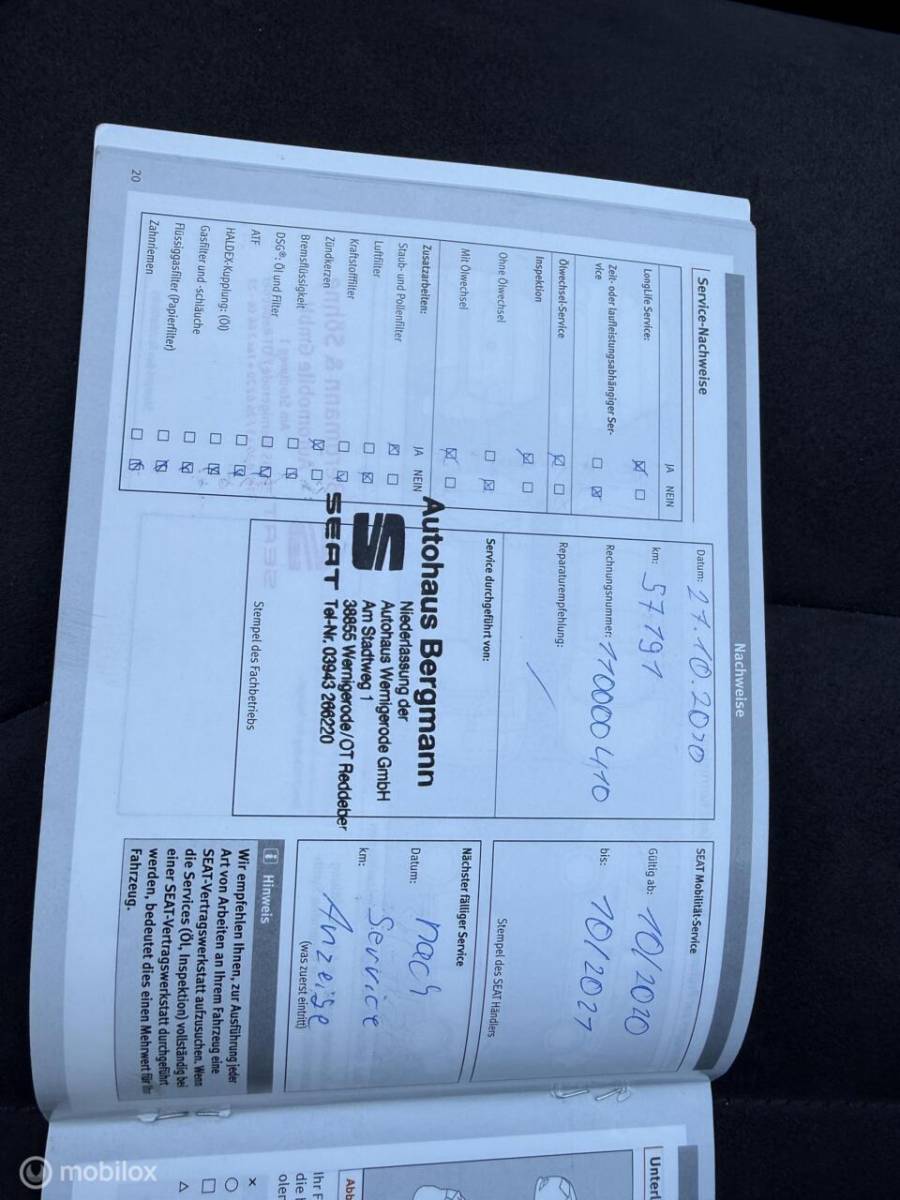 20
Nachweise
Service-Nachweise
JA NEIN
LongLife Service:
Zeit- oder laufleistungsabhängiger Ser-
vice
Ölwechsel-Service
Inspektion
Ohne Ölwechsel
Mit Ölwechsel
Zusatzarbeiten: JA NEIN
Staub- und Pollenfilter
Luftfilter
Kraftstofffilter
Zündkerzen
Bremsflüssigkeit
DSG®: Öl und Filter
ATF
HALDEX-Kupplung: (Öl)
Gasfilter und -schläuche
Flüssiggasfilter (Papierfilter)
Zahnriemen
Datum: 27.10.2020
km: 57.191
Rechnungsnummer: 1100000410
Reparaturempfehlung:
Service durchgeführt von:
Autohaus Bergmann
Niederlassung der
Autohaus Wernigerode GmbH
Am Stadtweg 1
38855 Wernigerode/OT Reddeber
SEAT Tel-Nr. 03943 266220
Stempel des Fachbetriebs
SEAT Mobilität-Service
Gültig ab: 10/2020
bis: 10/2021
Stempel des SEAT Händlers
Nächster fälliger Service
Datum: nach
km: Service
Anzeige
(was zuerst eintritt)
i Hinweis
Wir empfehlen Ihnen, zur Ausführung jeder
Art von Arbeiten an Ihrem Fahrzeug eine
SEAT-Vertragswerkstatt aufzusuchen. Wenn
die Services (Öl, Inspektion) vollständig bei
einer SEAT-Vertragswerkstatt durchgeführt
werden, bedeutet dies einen Mehrwert für Ihr
Fahrzeug.
Unterl
Abb
Ihr F
die
oler
mobilox